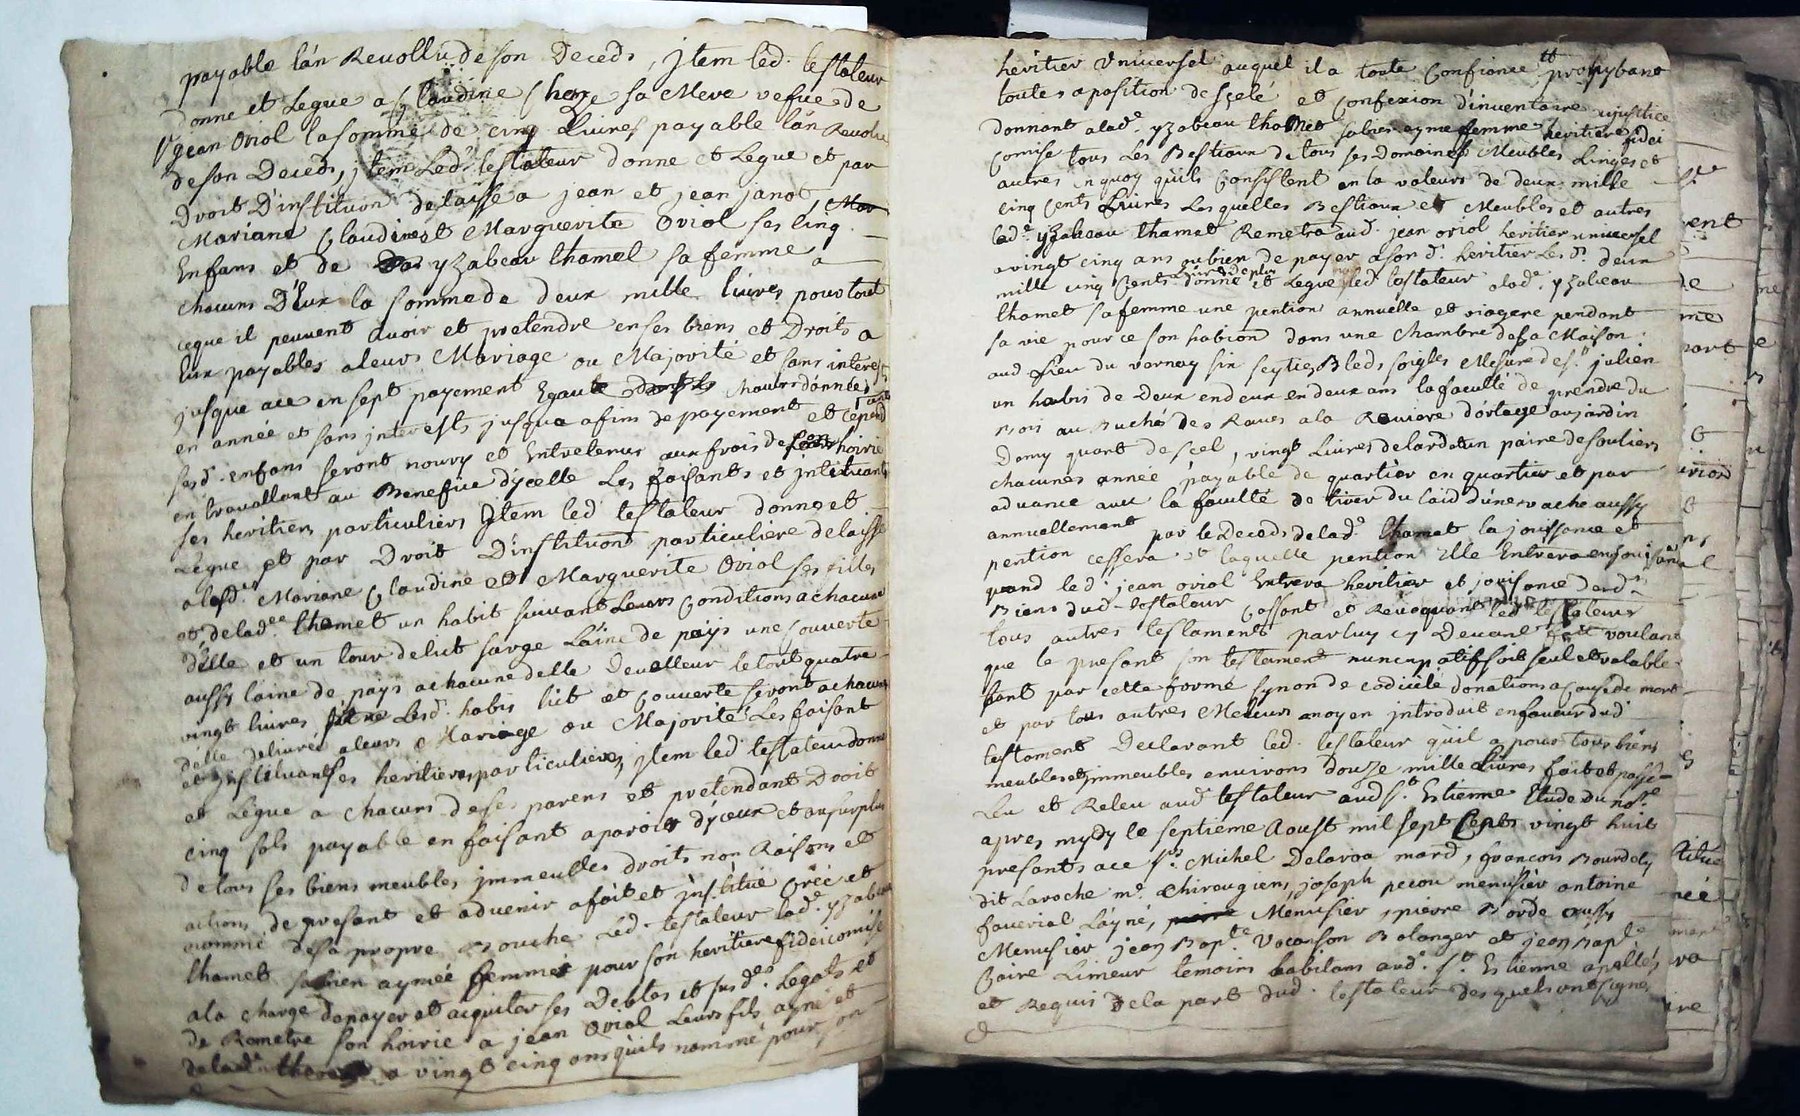 payable lán Reuollu de son Deceds, jtem led. testateur
donne et Legue a Claudine Cheze sa Mere vefue de
jean Oriol la somme de cinq Liures payable lán Reuolu
de son Deceds, jtem Led. testateur donne et Legue et par
Droit D'institution delaisse a jean et jean janot,
Mariane Claudine et Marguerite Oriol ses cinq
Enfans et de yzabeau thamet sa femme a
chacuns D'Eux la somme de deux mille liures pour tout
ceque il peuuent auoir et pretendre en ses biens et Droits a
Eux payables a leurs Mariage ou Majorité et sans interest
jusque a ce en sept payement Egaux chacuns données
en année et sans jnterests jusqua a fins de payement et cepend
sesd. enfans seront noury et Entretenus aux frais de hoirie
en trauallant au Benefice d'ycelle Les faisants et jnstituants
ses heritiers particuliers Jtem led testateur donne et
Legue et par Droit D'institution particuliere delaisse
a lesd. Mariane Claudine et Marguerite Oriol ses filles
et de lad. thamet un habit suiuant Leurs Conditions a chacune
d'elle et un tour de lict sarge Laine de pays une couuerte
aussy laine de pays a chacune delle de valleur le tout quatre
vingt liures Lesd. habis lict et Couuerte seront a chacune
delle deliuré a leurs Mariage ou Majorité Les faisant
et jnstituant ses heritieres particulieres jtem led testateur donne
et Legue a chacuns de ses parens et pretendant Droit
cinq sols payable en faisant aparoir d'yceux et au surplus
de tous ses biens meubles jmmeubles droits non Raisons et
actions de present et aduenir a fait et institué Créé et
nommé de sa propre Bouche Led. testateur lad. yzabeau
thamet sa bien aymée femme pour son heritiere fideicomise
a la charge de payer et acquiter ses Debtes et susd. Legats et
de Rometre son hoirie a jean Oriol Leurs fils ayné et
de lad. thamet a vingt cinq ans quils nommé pour son
heritier Vniuersel auquel il a toute Confiance prohybant
toutes aposition de scelé et Confexion d'inuentaire
donnant a lad. yzabeau thamet sa bien ayme femme heritiere fidei
Comise tous Les Bestiaux de tous ses Domaines Meubles Linges et
autres en quoy quils Consistent en la valeurs de deux mille
cinq Cents Liures Lesquelles Bestiaux et Meubles et autres
lad. yzabeau thamet Remetra aud. jean oriol heritier uniuersel
a vingt cinq ans ou bien de payer a son d. heritier Les d. deux
mille cinq Cents donne et Legue led testateur a lad. yzabeau
thamet sa femme une pention annuelle et viagere pendant
sa vie pour ce son habion dans une Chambre de sa Maison
aud lieu du vernay six seyties Bled soigles Mesure de st julien
un habis de Deux en deux en deux ans la faculté de prendre du
Bois au Buché des Raues a la Rauiare d'ortage au jardin
Demy quart de scel, vingt Liures de lard et un paire de souliers
chacunes année payable de quartier en quartier et par
aduance auec la faculté de tirer du laid d'une vache aussy
annuellement par le Deceds de lad. thamet la jouissance et
pention cessera et laquelle pention Elle Entrera en jouissance
quand led. jean oriol Entrera heritier et jouisance desd.
Biens dud. testateur Cassant et Reuoquant led testateur
tous autres testaments par luy cy Deuant fait voulant
que le presant son testament nuncupatif soit seul et valable
tant par cette forme synon de codicile donations a Cause de mort
et par tous autres Melieurs moyen introduit en faueur dud
testament Declarant led. testateur quil a pour tous biens
meubles et jmmeubles enuirons douze mille Liures fait et passé
Lu et Releu aud testateur aud st. Estienne Etude du nore
apres mydy le septieme Aoust mil sept Cents vingt huit
presants a ce sr. Michel Delaroa mard, francois Bourdely
dit Laroche me. Chirougiens, joseph pecou menusier antoine
faucrial Láyné, Menusier, pierre Borde aussy
Menusier jean Bapte. Vocanson Bolanger et jean Bapte
Baire Limeur temoins habitans aud. st. Estienne apallés
et Requis de la part dud. testateur desquels ont signé